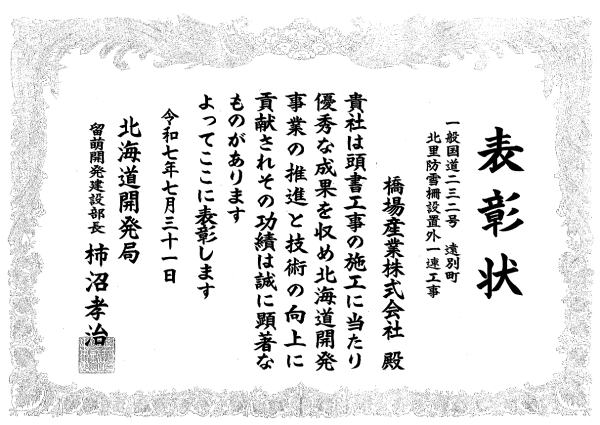 表彰状
一般国道二三二号 遠別町
北里防雪柵設置外一連工事
橋場産業株式会社 殿
貴社は頭書工事の施工に当たり
優秀な成果を収め北海道開発
事業の推進と技術の向上に
貢献されその功績は誠に顕著な
ものがあります
よってここに表彰します
令和七年七月三十一日
北海道開発局
留萌開発建設部長 柿沼孝治